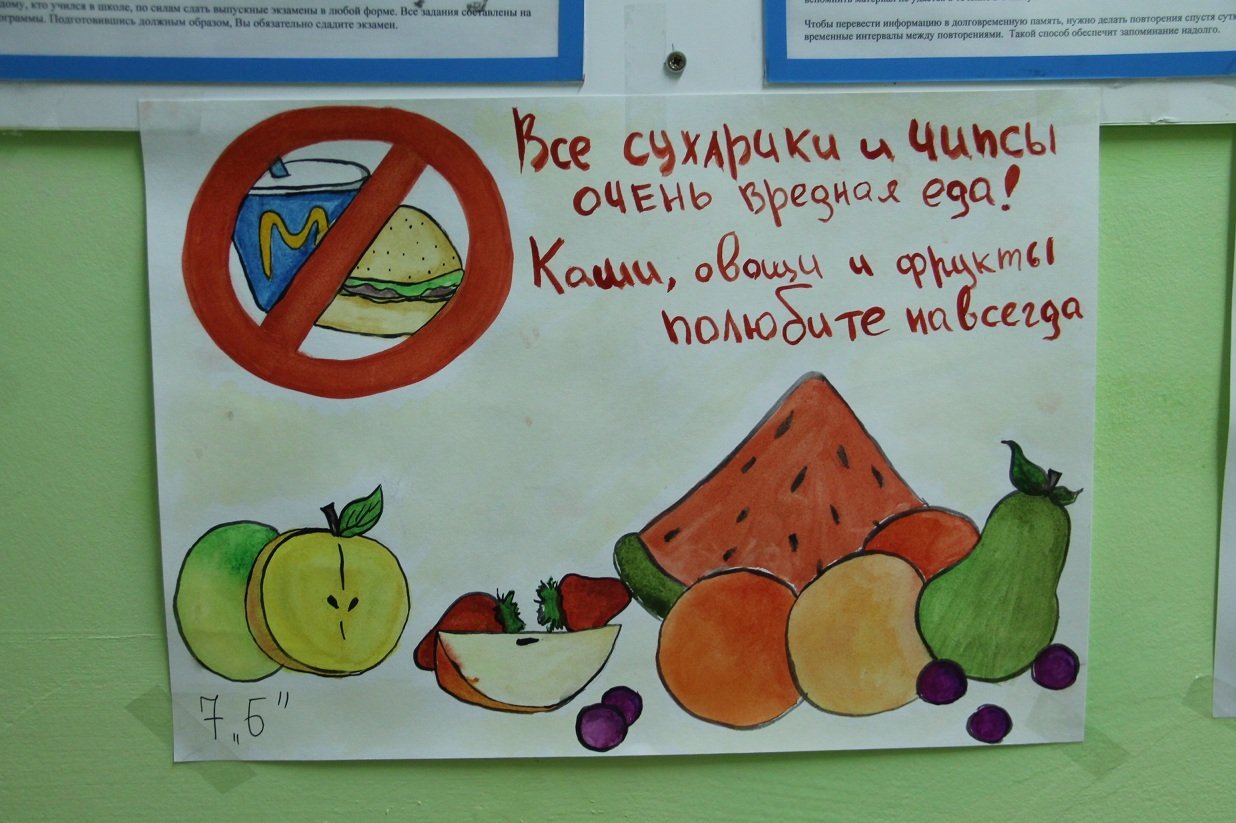 дому, кто учился в школе, по силам сдать выпускные экзамены в любой форме. Все задания составлены на
граммы. Подготовившись должным образом, Вы обязательно сдадите экзамен.
Чтобы перевести информацию в долговременную память, нужно делать повторения спустя
временные интервалы между повторениями. Такой способ обеспечит запоминание надолго.
Все сухарики и чипсы
очень вредная еда!
Каши, овощи и фрукты
полюбите навсегда
M
7 „Б"